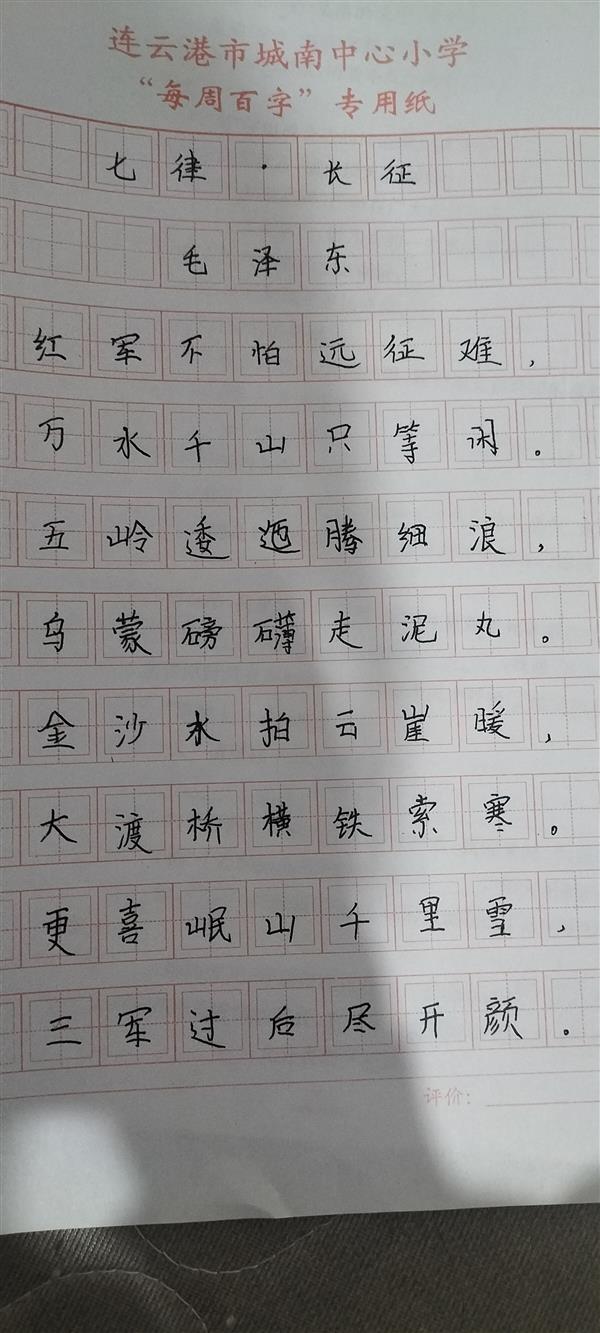 连云港市城南中心小学
“每周百字”专用纸
七律·长征
毛泽东
红军不怕远征难，
万水千山只等闲。
五岭逶迤腾细浪，
乌蒙磅礴走泥丸。
金沙水拍云崖暖，
大渡桥横铁索寒。
更喜岷山千里雪，
三军过后尽开颜。
评价：